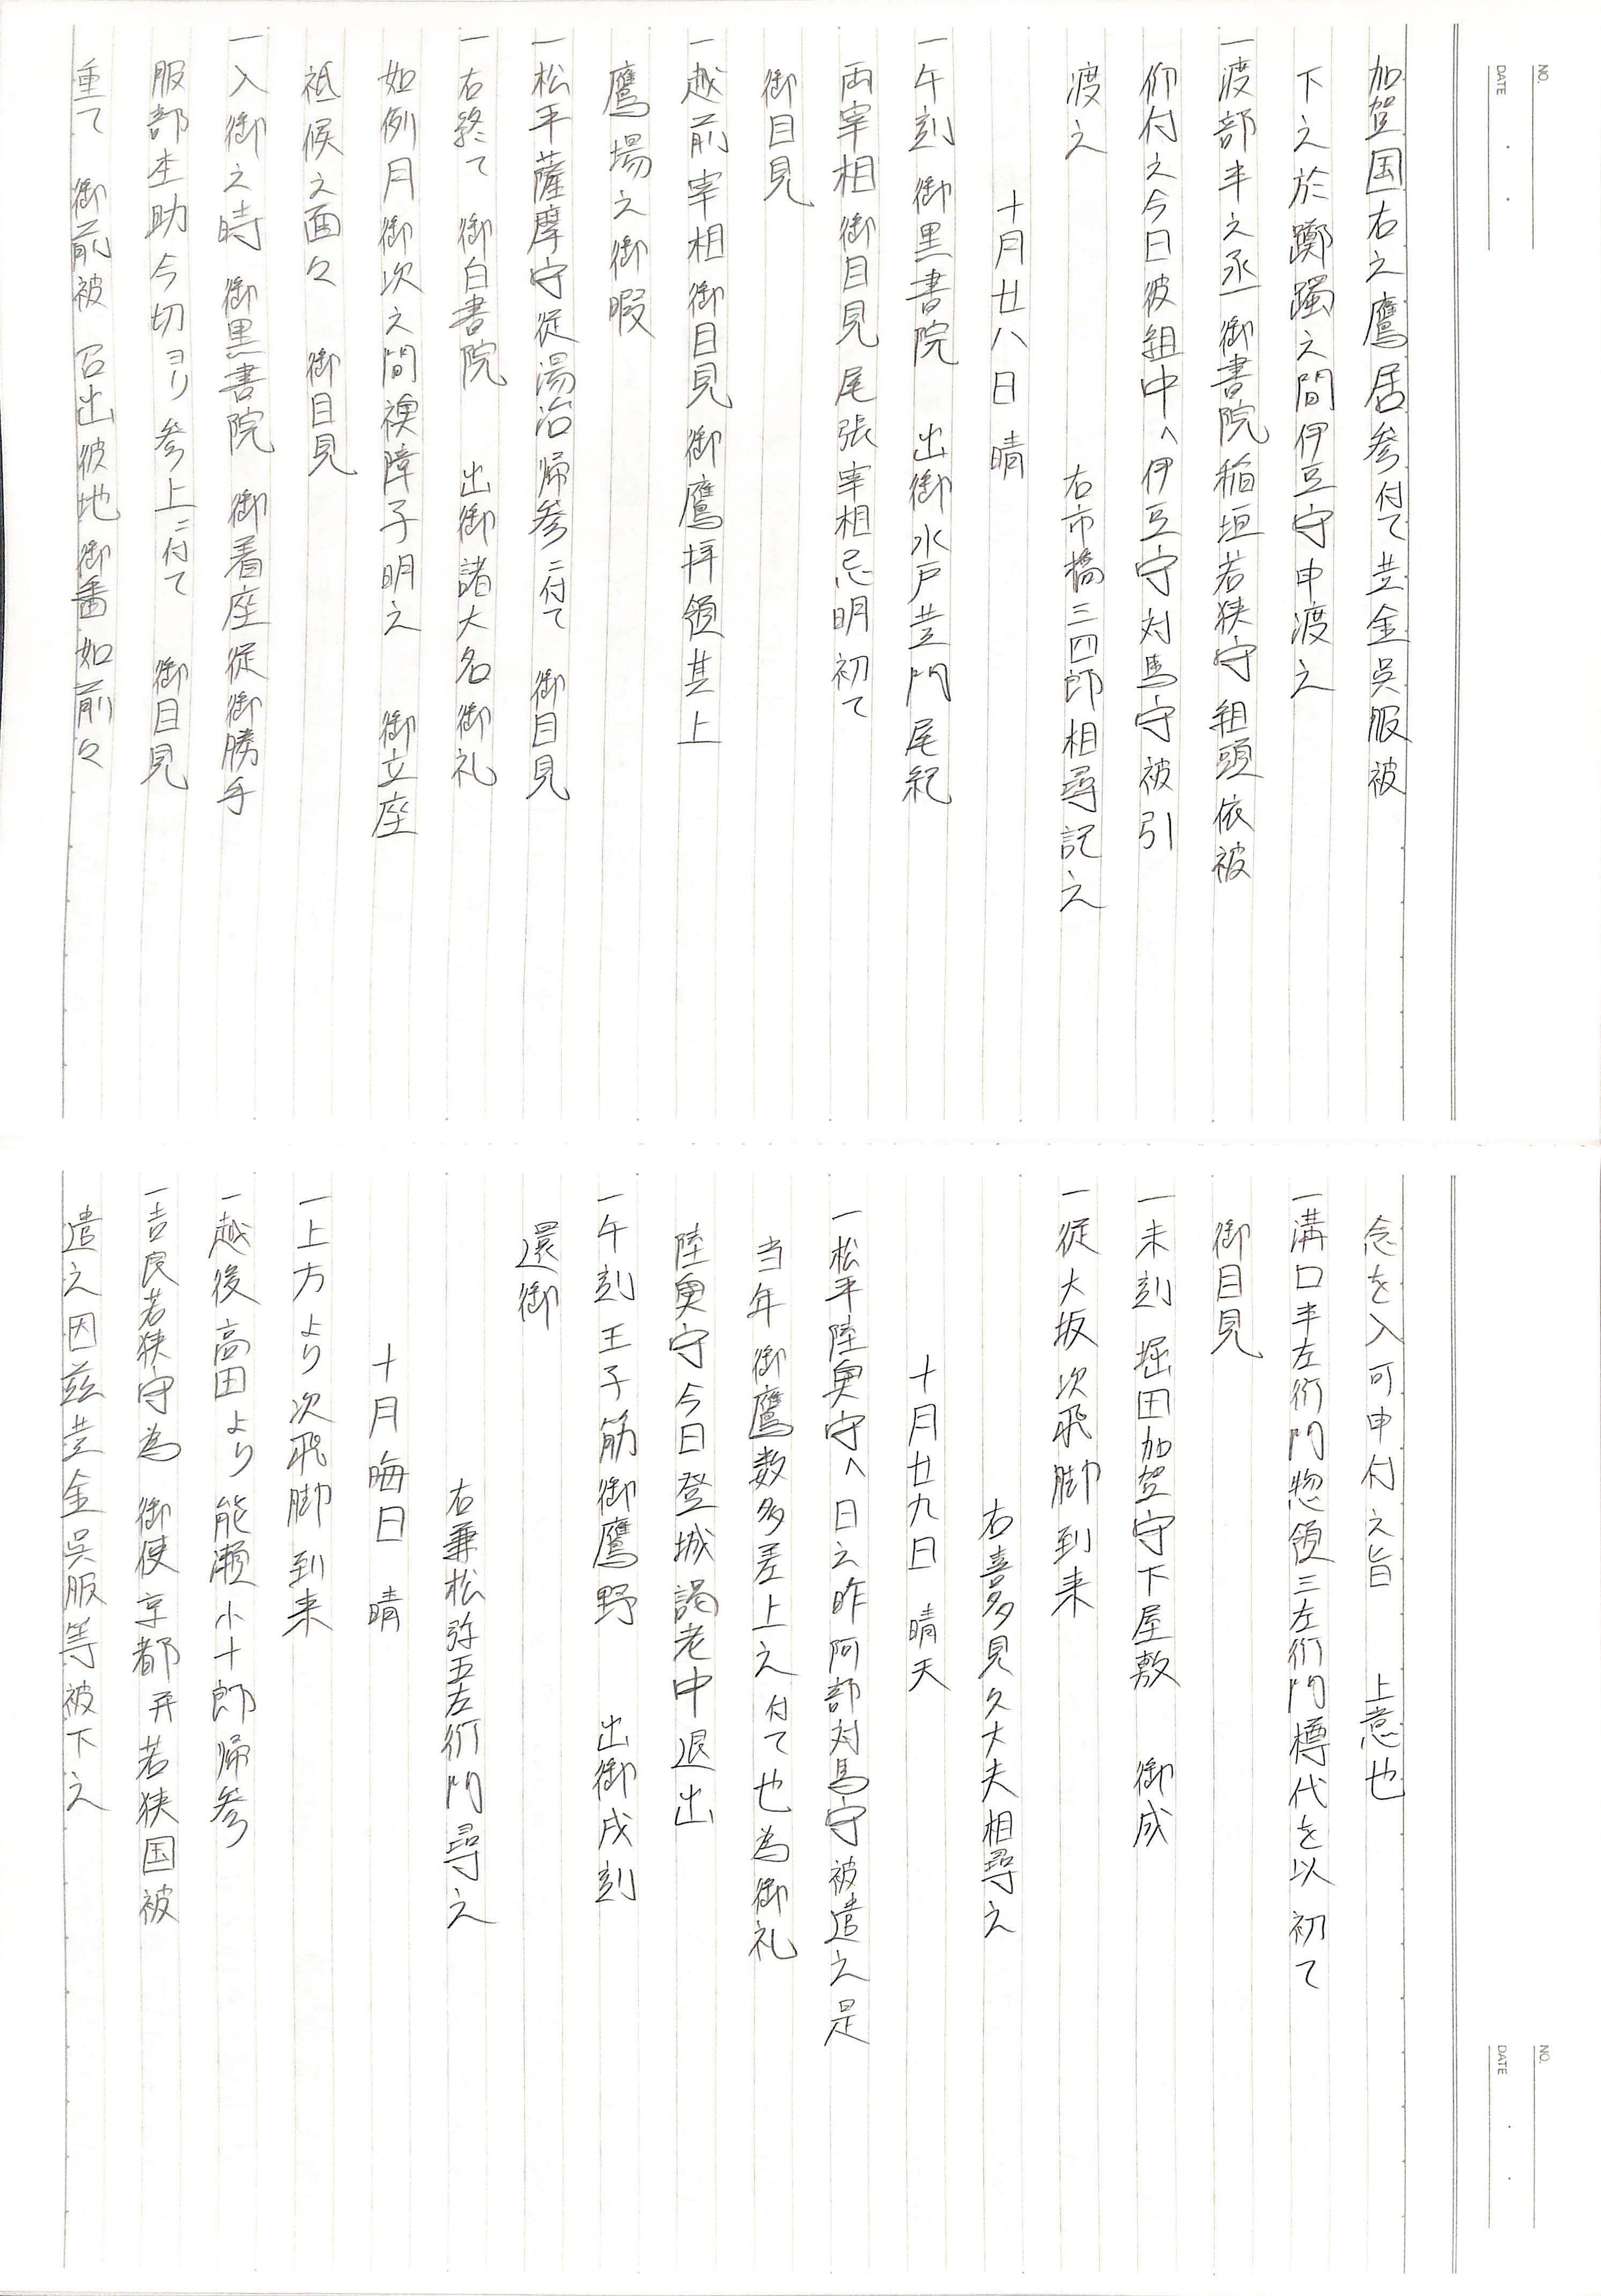 NO.
DATE
加賀国右之鷹居参付て並金呉服被
下之於躑躅之間伊豆守申渡之
一渡部半之丞 御書院稲垣若狭守組頭依被
仰付之今日彼組中へ伊豆守対馬守被引
渡之
右市橋三四郎相尋記之
十月廿八日 晴
一午刻 御黒書院 出御水戸黄門尾紀
両宰相御目見尾張宰相忌明初て
御目見
一越前宰相御目見御鷹拝領其上
鷹場之御暇
一松平薩摩守従湯治帰参ニ付て 御目見
一右終て 御白書院 出御諸大名御礼
如例月御次之間襖障子明之 御立座
祗候之面々 御目見
一入御之時 御黒書院 御着座従御勝手
服部杢助今切ヨリ参上ニ付て 御目見
重て 御前被 召出彼地御番如前々
NO.
DATE
念を入可申付之旨 上意也
一溝口半左衛門惣領三左衛門樽代を以初て
御目見
一未刻 堀田加賀守下屋敷 御成
一従大坂次飛脚到来
右喜多見久大夫相尋之
十月廿九日 晴天
一松平陸奥守へ日之昨阿部対馬守被遣之是
当年 御鷹数多差上之付て也為御礼
陸奥守今日登城謁老中退出
一午刻王子筋御鷹野 出御戌刻
還御
右兼松弥五左衛門尋之
十月晦日 晴
一上方より次飛脚到来
一越後高田より能瀬小十郎帰参
一吉良若狭守為 御使京都并若狭国被
遣之因茲並金呉服等被下之